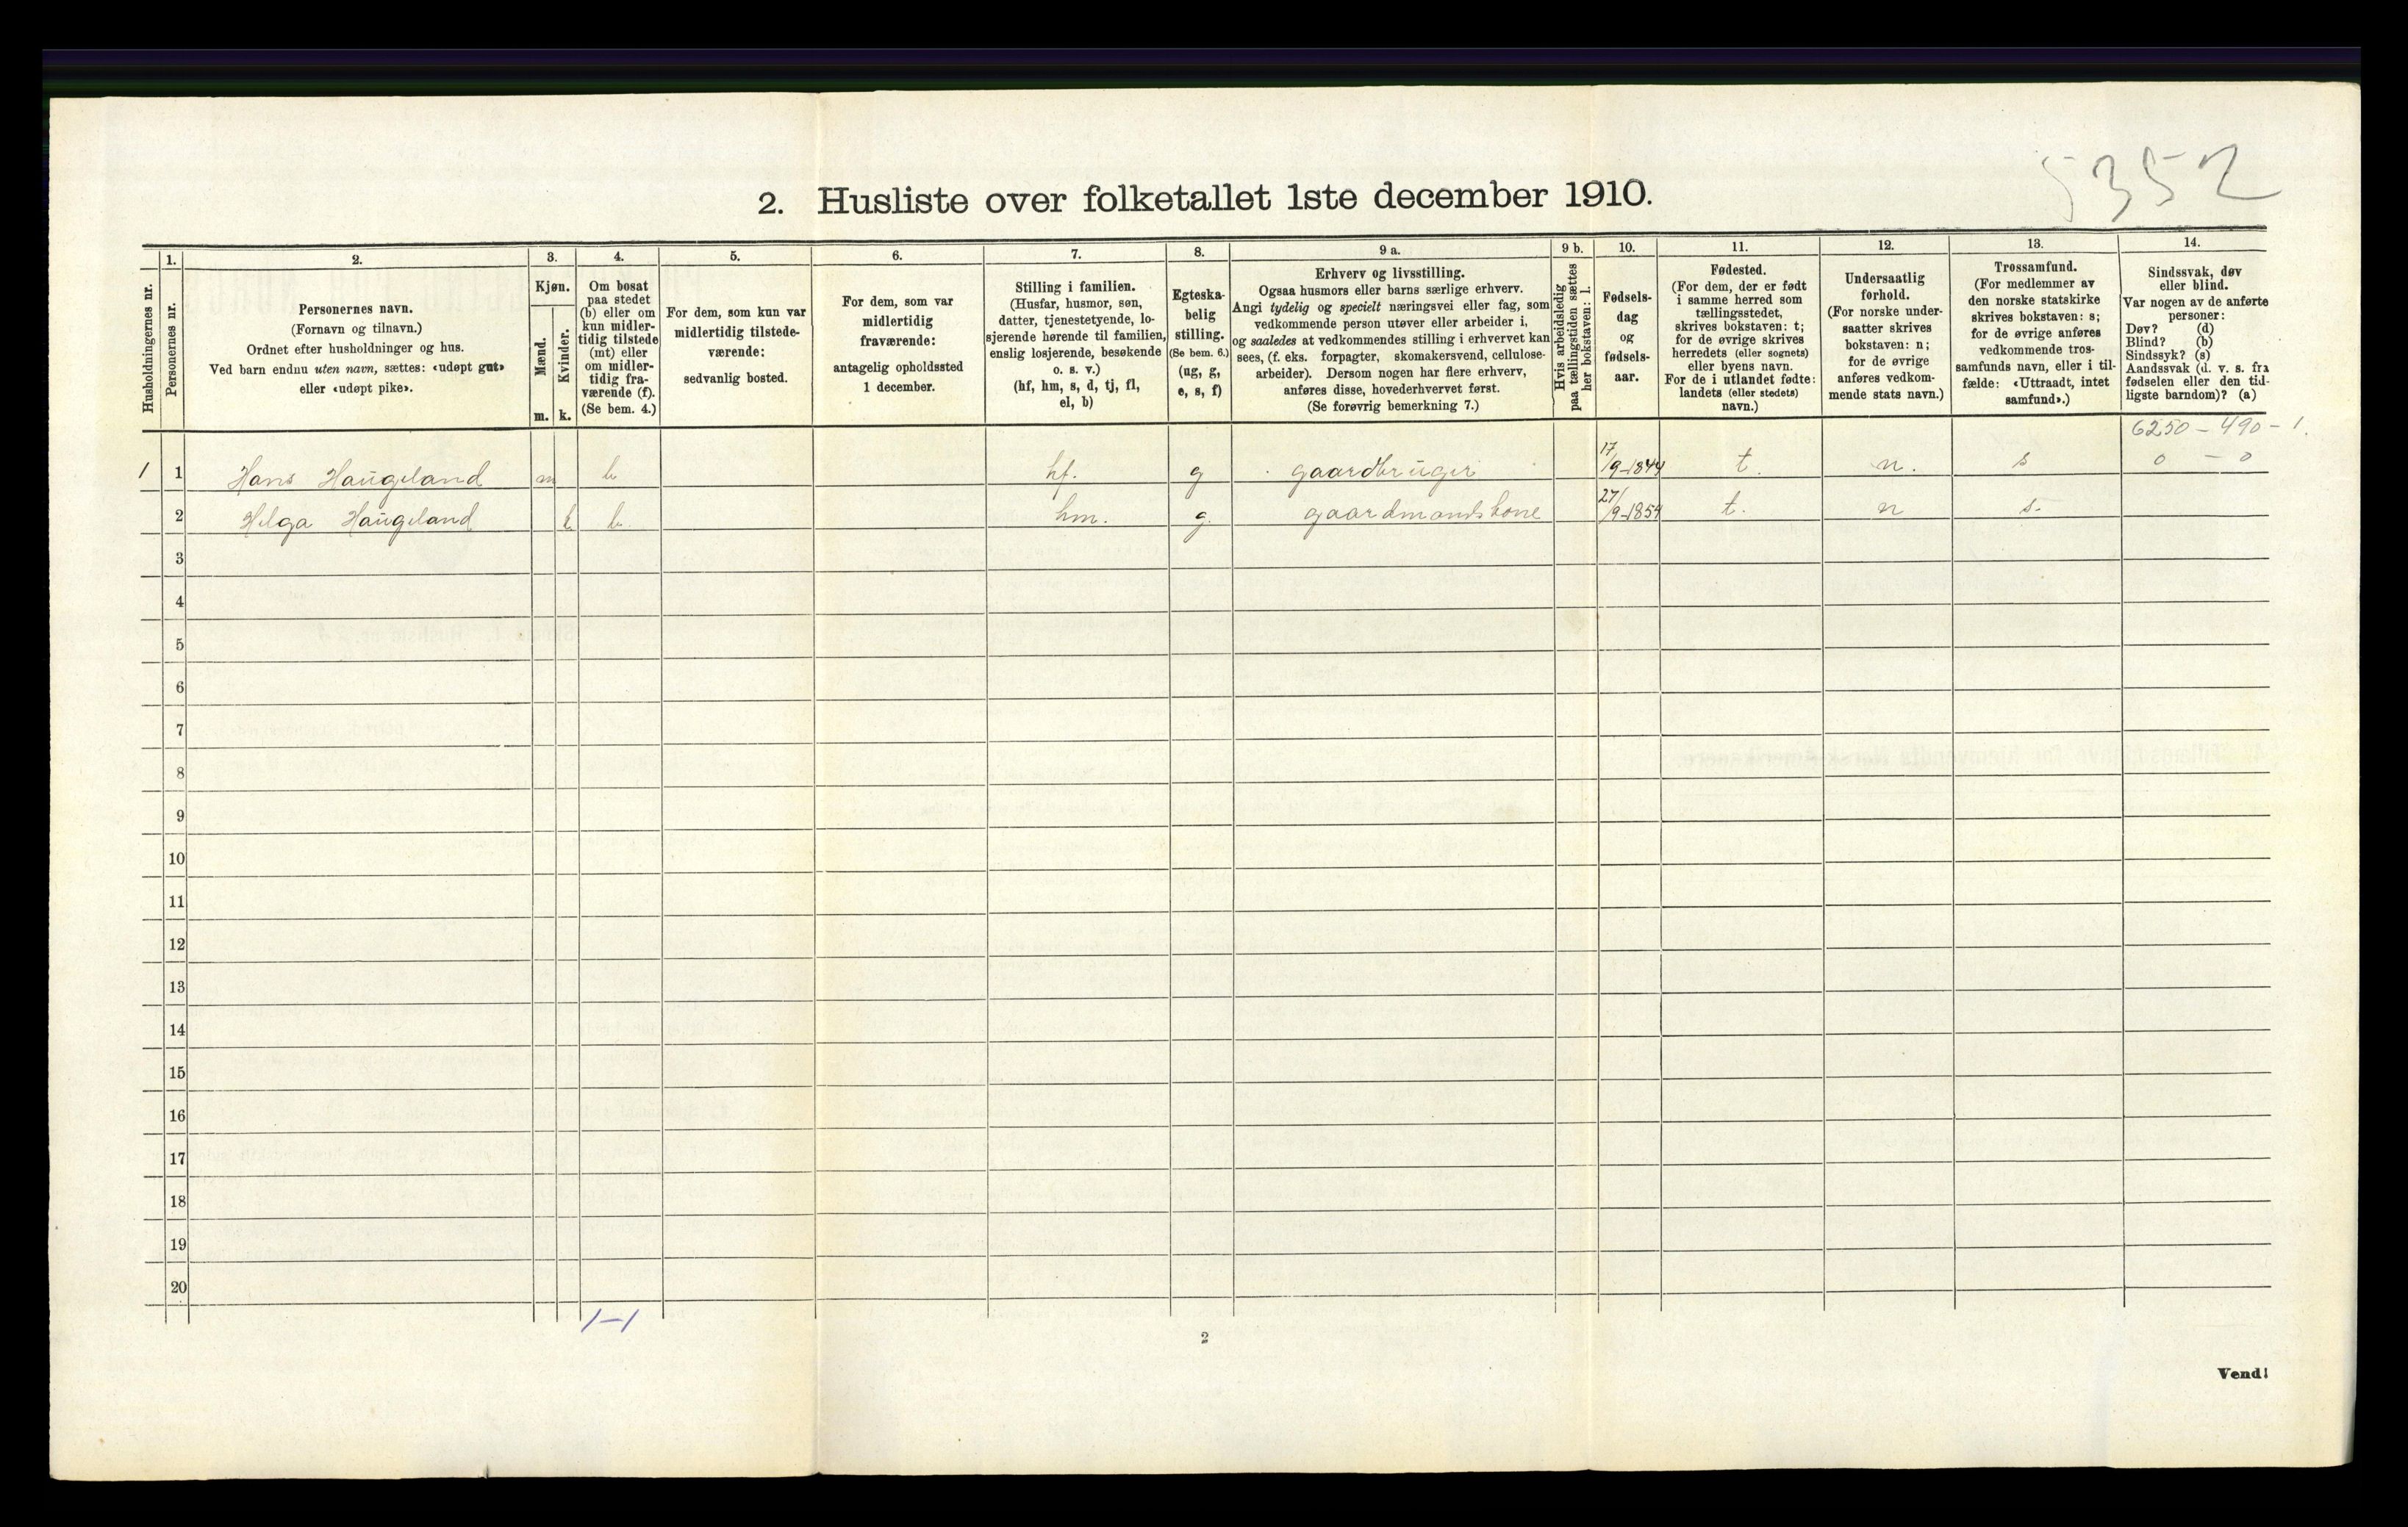 5352
2. Husliste over folketallet 1ste december 1910.
Husholdningernes nr.
1.
Personernes nr.
2.
Personernes navn.
(Fornavn og tilnavn.)
Ordnet efter husholdninger og hus.
Ved barn endnu uten navn, sættes: «udøpt gut»
eller «udøpt pike».
3.
Kjøn.
Mænd.
m.
Kvinder.
k.
4.
Om bosat
paa stedet
(b) eller om
kun midler-
tidig tilstede
(mt) eller
om midler-
tidig fra-
værende (f).
(Se bem. 4.)
5.
For dem, som kun var
midlertidig tilstede-
værende:
sedvanlig bosted.
6.
For dem, som var
midlertidig
fraværende:
antagelig opholdssted
1 december.
7.
Stilling i familien.
(Husfar, husmor, søn,
datter, tjenestetyende, lo-
sjerende hørende til familien,
enslig losjerende, besøkende
o. s. v.)
(hf, hm, s, d, tj, fl,
el, b)
8.
Egteska-
belig
stilling.
(Se bem. 6.)
(ug, g,
e, s, f)
9 a.
Erhverv og livsstilling.
Ogsaa husmors eller barns særlige erhverv.
Angi tydelig og specielt næringsvei eller fag, som
vedkommende person utøver eller arbeider i,
og saaledes at vedkommendes stilling i erhvervet kan
sees, (f. eks. forpagter, skomakersvend, cellulose-
arbeider). Dersom nogen har flere erhverv,
anføres disse, hovederhvervet først.
(Se forøvrig bemerkning 7.)
9 b.
Hvis arbeidsledig
paa tællingstiden sættes
her bokstaven: l.
10.
Fødsels-
dag
og
fødsels-
aar.
11.
Fødested.
(For dem, der er født
i samme herred som
tællingsstedet,
skrives bokstaven: t;
for de øvrige skrives
herredets (eller sognets)
eller byens navn.
For de i utlandet fødte:
landets (eller stedets)
navn.)
12.
Undersaatlig
forhold.
(For norske under-
saatter skrives
bokstaven: n;
for de øvrige
anføres vedkom-
mende stats navn.)
13.
Trossamfund.
(For medlemmer av
den norske statskirke
skrives bokstaven: s;
for de øvrige anføres
vedkommende tros-
samfunds navn, eller i til-
fælde: «Uttraadt, intet
samfund».)
14.
Sindssvak, døv
eller blind.
Var nogen av de anførte
personer:
Døv? (d)
Blind? (b)
Sindssyk? (s)
Aandssvak (d. v. s. fra
fødselen eller den tid-
ligste barndom)? (a)
6250 – 490 – 1.
0 – 0
1 1 Hans Haugeland m b hf. g gaardbruger 17/9-1844 t. n. s
2 Helga Haugeland k b. hm. g. gaardmandskone 27/9-1854 t. n s.
3
4
5
6
7
8
9
10
11
12
13
14
15
16
17
18
19
20
1–1
2
Vend!